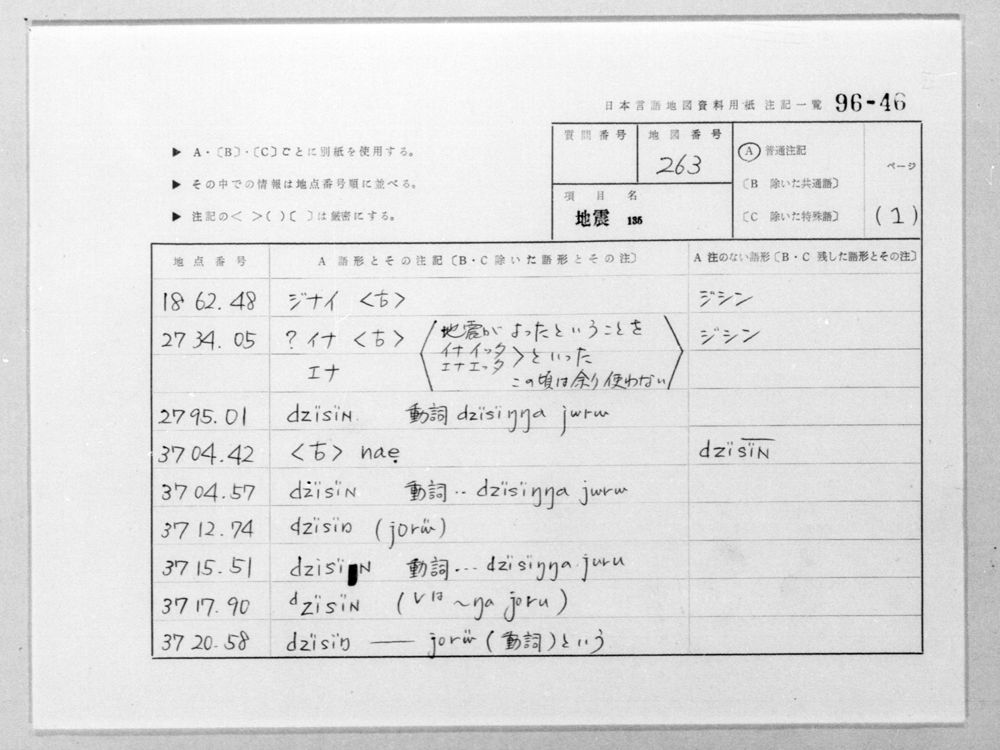 日本言語地図資料用紙 注記一覧 96-46
▶ A・〔B〕・〔C〕ごとに別紙を使用する。
▶ その中での情報は地点番号順に並べる。
▶ 注記の< >( )〔 〕は厳密にする。
質問番号
地図番号
263
項目名
地震 135
Ⓐ 普通注記
〔B 除いた共通語〕
〔C 除いた特殊語〕
ページ
(1)
地点番号 A 語形とその注記〔B・C 除いた語形とその注〕 A 注のない語形〔B・C 残した語形とその注〕
18 62.48 ジナイ <古> ジシン
27 34.05 ?イナ <古> 〈地震がよったということを ジシン
イナイッタ
エナエッタ〉といった
エナ この頃は余り使わない〉
27 95.01 dzïsïɴ 動詞 dzïsïŋŋa jɯrɯ
37 04.42 <古> nae̩ dzïsïɴ
37 04.57 dzïsïɴ 動詞‥dzïsïŋŋa jɯrɯ
37 12.74 (jorɯ̈)
37 15.51 dzisïɴ 動詞…dzïsïŋŋa juru
37 17.90 ᵈzïsïɴ (Vは ~ŋa joru)
37 20.58 ―― jorɯ̈ (動詞)という